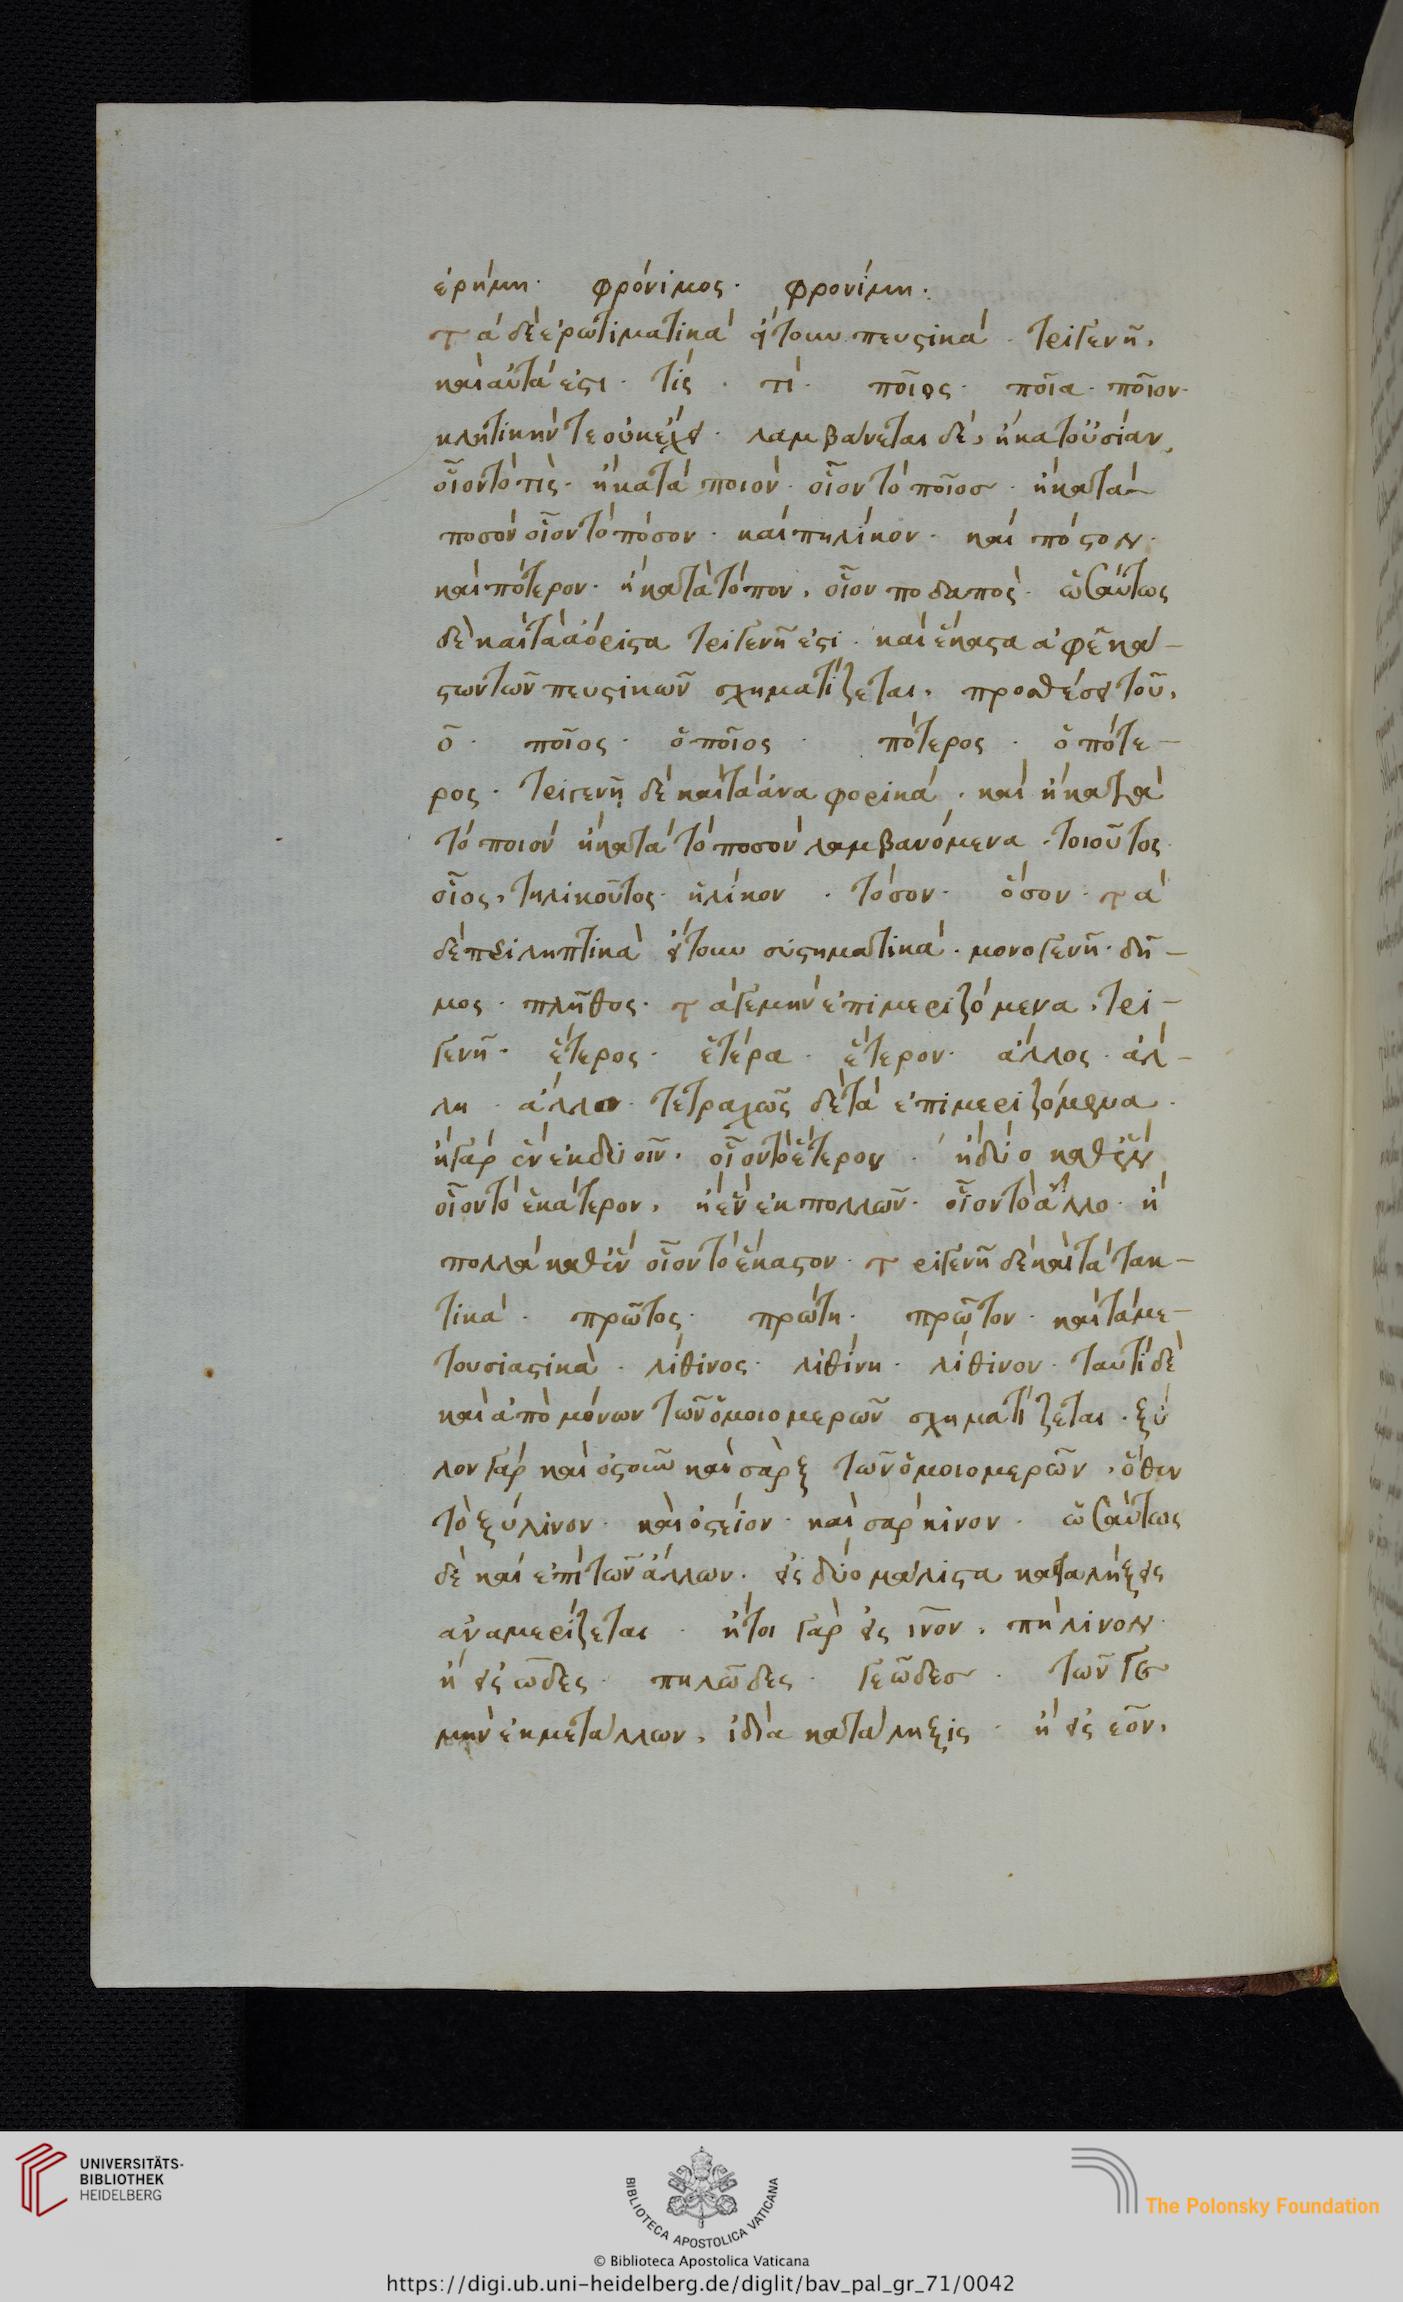 ἐρήμη· φρόνιμος· φρονίμη·
τὰ δὲ ἐρωτιματικὰ ἤτοι πευστικὰ· τριγενῆ,
καὶ αὐτά ἐστι· τίς· τί· ποῖος· ποῖα· ποῖον·
κλητικήν τε οὐκ ἔχει· λαμβάνεται δὲ, ἢ κατ' οὐσίαν,
οἷον τὸ τίς· ἢ κατὰ ποιόν· οἷον τὸ ποῖος· ἢ κατὰ
ποσὸν οἷον τὸ πόσον· καὶ πηλίκον· καὶ πόστον·
καὶ πότερον· ἢ κατὰ τόπον, οἷον ποδαπὸς· ὡσαύτως
δὲ καὶ τὰ ἀόριστα τριγενῆ ἐστι· καὶ ἕκαστα ἀφ' ἑκά-
στων τῶν πευστικῶν σχηματίζεται, προσθέσει τοῦ,
ὁ· ποῖος· ὁποῖος· πότερος· ὁπότε-
ρος· τριγενῆ δὲ καὶ τὰ ἀναφορικά· καὶ ἢ κατὰ
τὸ ποιὸν ἢ κατὰ τὸ ποσὸν λαμβανόμενα· τοιοῦτος
οἷος, τηλικοῦτος· ἡλίκον· τόσον· ὅσον· τὰ
δὲ περιληπτικὰ ἤτοι συστηματικὰ· μονογενῆ· δῆ-
μος· πλῆθος· τάγε μὴν ἐπιμεριζόμενα, τρι-
γενῆ· ἕτερος· ἑτέρα· ἕτερον· ἄλλος· ἄλ-
λη· ἄλλο· τετραχῶς δὲ τὰ ἐπιμεριζόμενα·
ἢ γὰρ ἓν ἐκ δυοῖν, οἷον τὸ ἕτερον· ἢ δύο καθ' ἓν
οἷον τὸ ἑκάτερον, ἢ ἓν ἐκ πολλῶν· οἷον τὸ ἄλλο· ἢ
πολλὰ καθ' ἓν οἷον τὸ ἕκαστον· τριγενῆ δὲ καὶ τὰ τακ-
τικά· πρῶτος· πρώτη· πρῶτον· καὶ τὰ με-
τουσιαστικὰ· λίθινος· λιθίνη· λίθινον· ταυτὶ δὲ
καὶ ἀπὸ μόνων τῶν ὁμοιομερῶν σχηματίζεται· ξύ
λον γὰρ καὶ ὀστοῦν καὶ σὰρξ τῶν ὁμοιομερῶν, ὅθεν
τὸ ξύλινον· καὶ ὀστεῖον· καὶ σαρκινον· ὡσαύτως
δὲ καὶ ἐπὶ τῶν ἄλλων· εἰς δύο μάλιστα καταλήξεις
ἀναμερίζεται· ἤτοι γὰρ εἰς ινον, πήλινον·
ἢ εἰς ῶδες· πηλῶδες· γεῶδες· τῶν γε
μὴν ἐκ μετάλλων, ἰδία κατάληξις· ἡ εἰς εον,
UNIVERSITÄTS-
BIBLIOTHEK
HEIDELBERG
BIBLIOTECA APOSTOLICA VATICANA
© Biblioteca Apostolica Vaticana
The Polonsky Foundation
https://digi.ub.uni-heidelberg.de/diglit/bav_pal_gr_71/0042